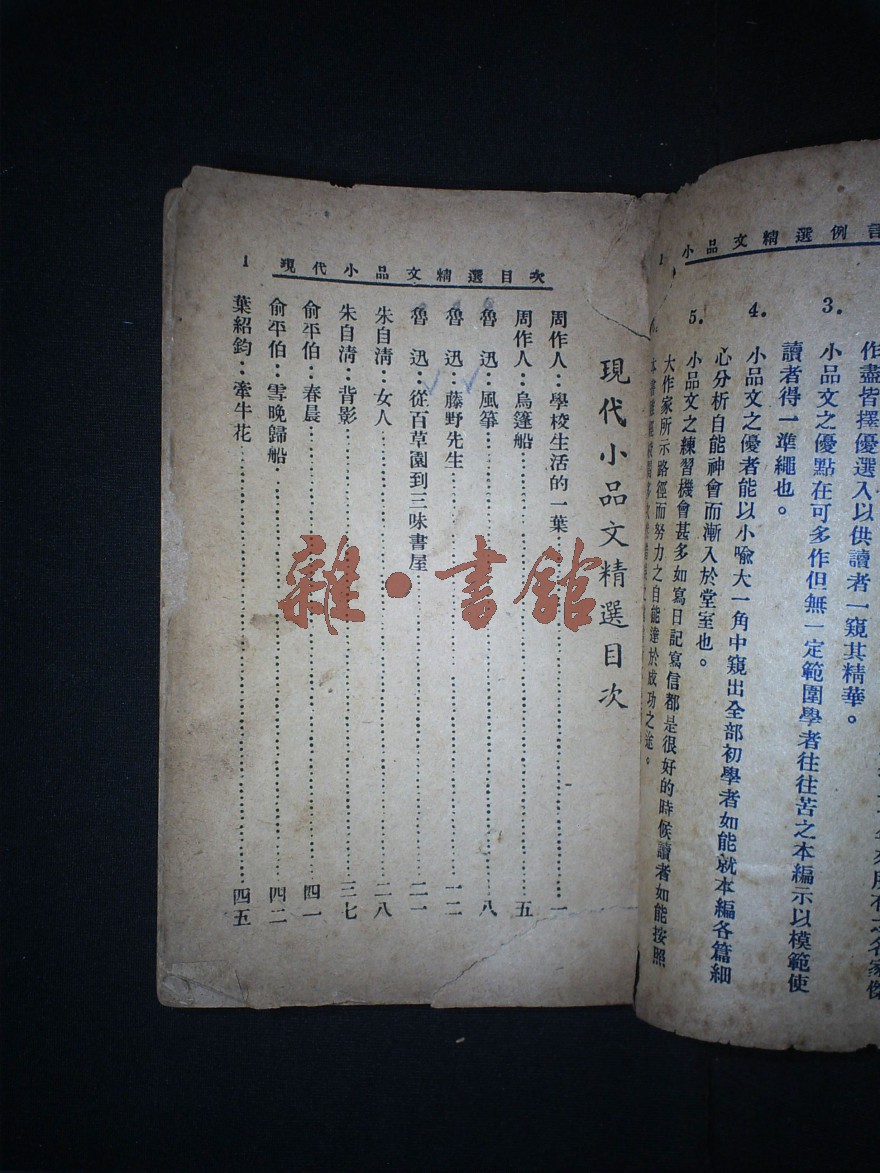 小品文精選例言
3.
作盡皆擇優選入以供讀者一窺其精華。
小品文之優點在可多作但無一定範圍學者往往苦之本編示以模範使
讀者得一準繩也。
4.
小品文之優者能以小喻大一角中窺出全部初學者如能就本編各篇細
心分析自能神會而漸入於堂室也。
5.
小品文之練習機會甚多如寫日記寫信都是很好的時候讀者如能按照
大作家所示路徑而努力之自能達於成功之途。
1 現代小品文精選目次
現代小品文精選目次
周作人：學校生活的一葉……一
周作人：烏篷船……五
魯迅：風箏……八
魯迅：藤野先生……一二
魯迅：從百草園到三味書屋……二一
朱自清：女人……二八
朱自清：背影……三七
俞平伯：春晨……四一
俞平伯：雪晚歸船……四二
葉紹鈞：牽牛花……四五
雜·書館